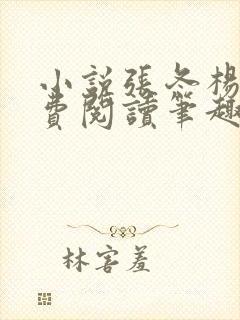 小説張冬楊
費閱讀筆趣
林害羞